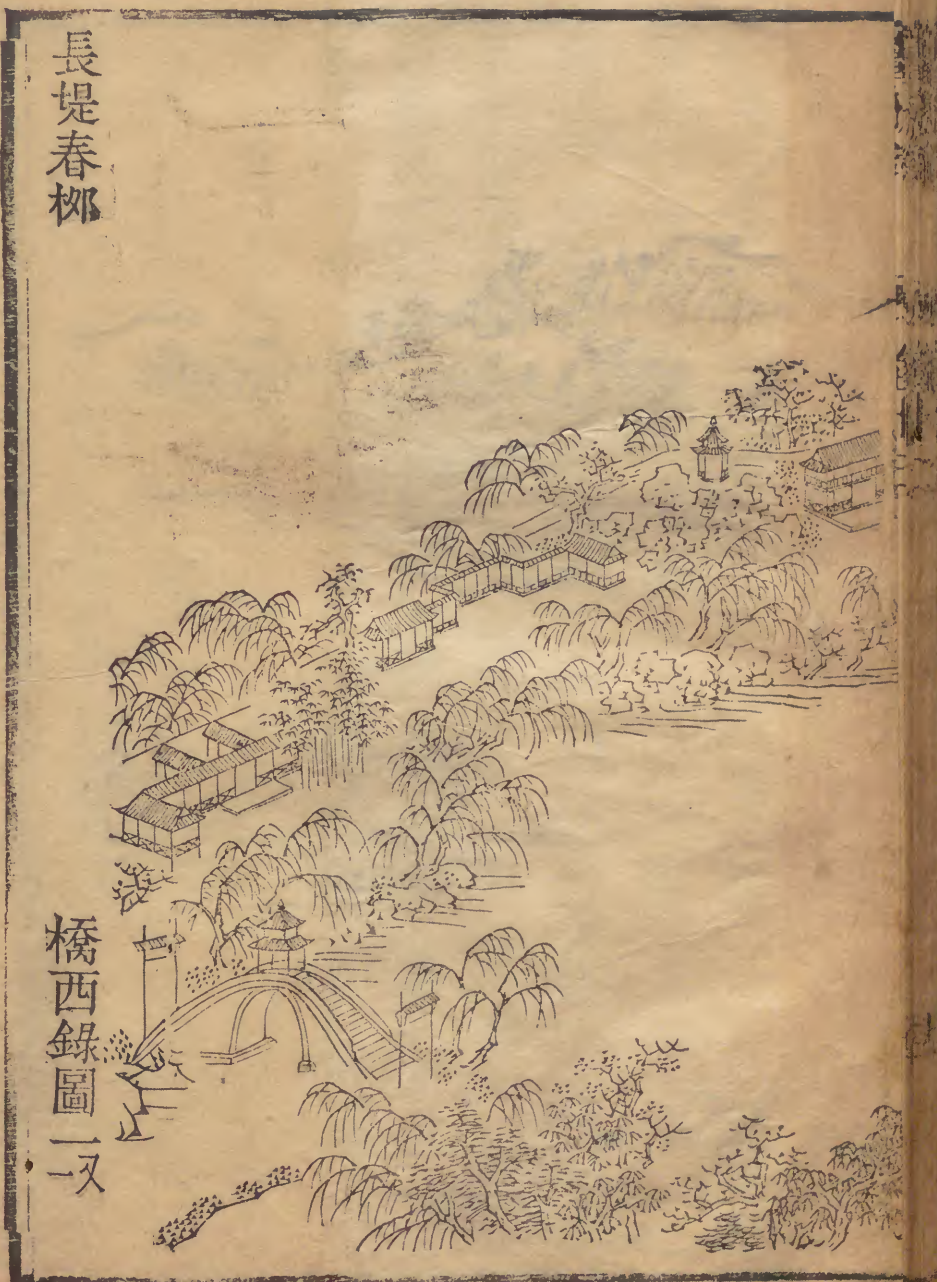 長堤春栁
橋西錄圖一又一